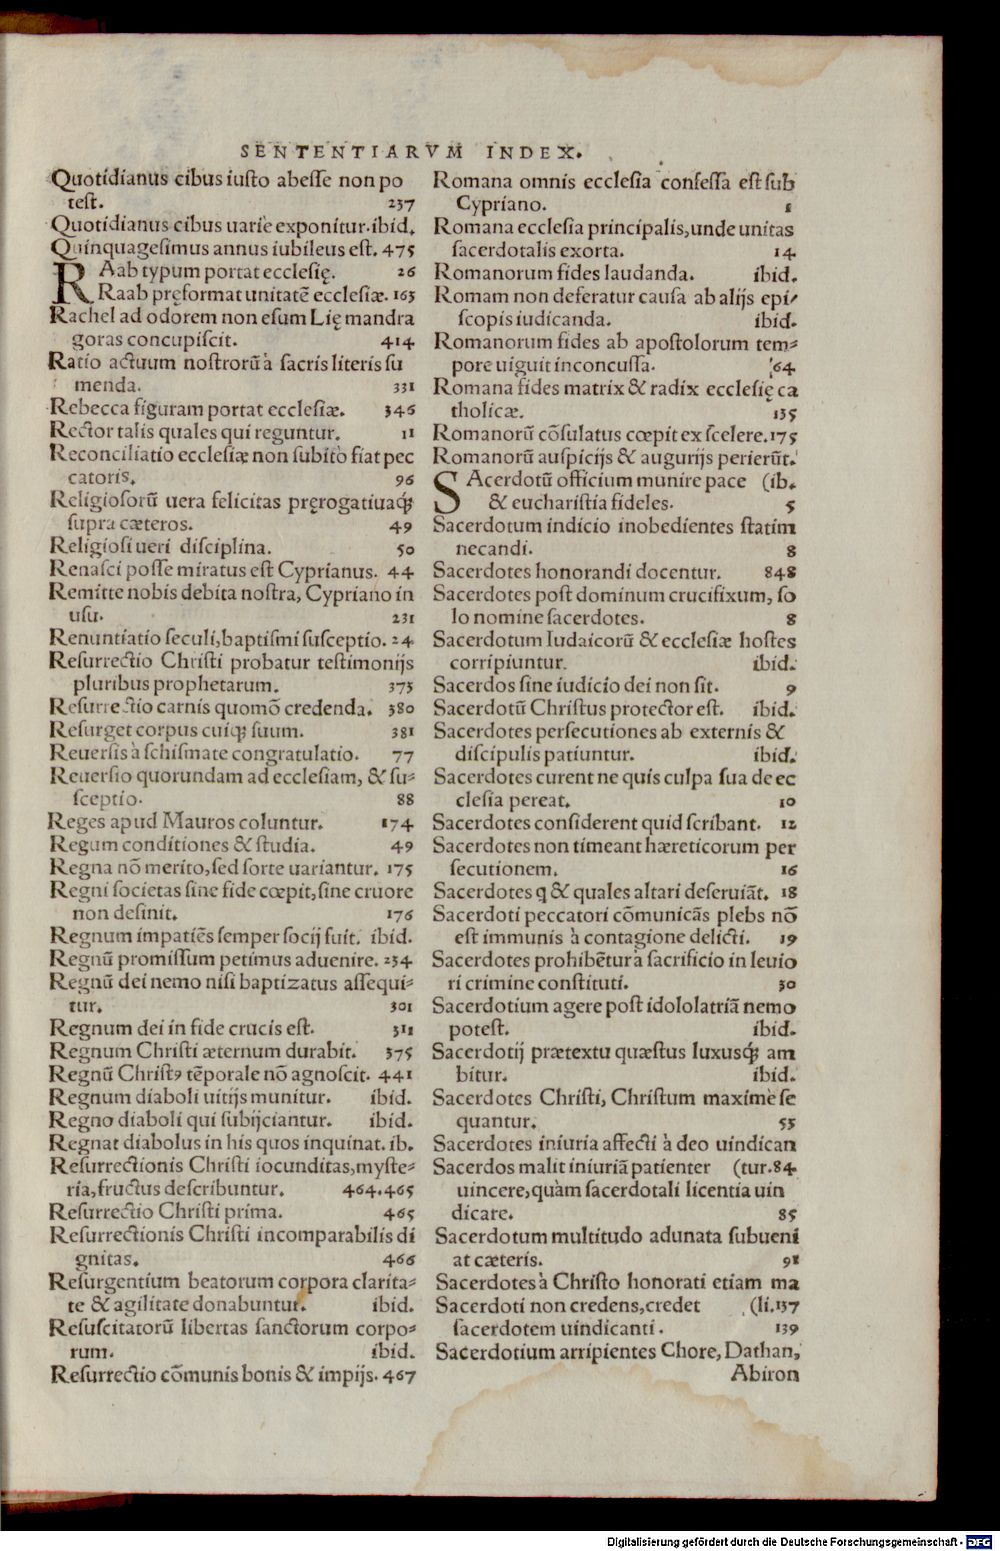 SENTENTIARVM INDEX.
Quotidianus cibus iusto abesse non po
test. 237
Quotidianus cibus uarie exponitur. ibid.
Quinquagesimus annus iubileus est. 475
RAab typum portat ecclesię. 26
Raab pręformat unitatē ecclesiæ. 163
Rachel ad odorem non esum Lię mandra
goras concupiscit. 414
Ratio actuum nostrorū à sacris literis su
menda. 331
Rebecca figuram portat ecclesiæ. 346
Rector talis quales qui reguntur. 11
Reconciliatio ecclesiæ non subito fiat pec
catoris. 96
Religiosorū uera felicitas pręrogatiuaq́;
supra cæteros. 49
Religiosi ueri disciplina. 50
Renasci posse miratus est Cyprianus. 44
Remitte nobis debita nostra, Cypriano in
usu. 231
Renuntiatio seculi, baptismi susceptio. 24
Resurrectio Christi probatur testimonijs
pluribus prophetarum. 373
Resurrectio carnis quomō credenda. 380
Resurget corpus cuiq; suum. 381
Reuersis à schismate congratulatio. 77
Reuersio quorundam ad ecclesiam, & su⸗
sceptio. 88
Reges apud Mauros coluntur. 174
Regum conditiones & studia. 49
Regna nō merito, sed sorte uariantur. 175
Regni societas sine fide cœpit, sine cruore
non desinit. 176
Regnum impatiēs semper socij fuit. ibid.
Regnū promissum petimus aduenire. 234
Regnū dei nemo nisi baptizatus assequi⸗
tur. 301
Regnum dei in fide crucis est. 311
Regnum Christi æternum durabit. 375
Regnū Christꝰ tēporale nō agnoscit. 441
Regnum diaboli uitijs munitur. ibid.
Regno diaboli qui subijciantur. ibid.
Regnat diabolus in his quos inquinat. ib.
Resurrectionis Christi iocunditas, myste⸗
ria, fructus describuntur. 464.465
Resurrectio Christi prima. 465
Resurrectionis Christi incomparabilis di
gnitas. 466
Resurgentium beatorum corpora clarita⸗
te & agilitate donabuntur. ibid.
Resuscitatorū libertas sanctorum corpo⸗
rum. ibid.
Resurrectio cōmunis bonis & impijs. 467
Romana omnis ecclesia confessa est sub
Cypriano. 1
Romana ecclesia principalis, unde unitas
sacerdotalis exorta. 14
Romanorum fides laudanda. ibid.
Romam non deferatur causa ab alijs epi⸗
scopis iudicanda. ibid.
Romanorum fides ab apostolorum tem⸗
pore uiguit inconcussa. 64
Romana fides matrix & radix ecclesię ca
tholicæ. 135
Romanorū cōsulatus cœpit ex scelere. 175
Romanorū auspicijs & augurijs perierūt.
SAcerdotū officium munire pace (ib.
& eucharistia fideles. 5
Sacerdotum indicio inobedientes statim
necandi. 8
Sacerdotes honorandi docentur. 848
Sacerdotes post dominum crucifixum, so
lo nomine sacerdotes. 8
Sacerdotum Iudaicorū & ecclesiæ hostes
corripiuntur. ibid.
Sacerdos sine iudicio dei non sit. 9
Sacerdotū Christus protector est. ibid.
Sacerdotes persecutiones ab externis &
discipulis patiuntur. ibid.
Sacerdotes curent ne quis culpa sua de ec
clesia pereat. 10
Sacerdotes considerent quid scribant. 12
Sacerdotes non timeant hæreticorum per
secutionem. 16
Sacerdotes q & quales altari deseruiāt. 18
Sacerdoti peccatori cōmunicās plebs nō
est immunis à contagione delicti. 19
Sacerdotes prohibētur à sacrificio in leuio
ri crimine constituti. 30
Sacerdotium agere post idololatriā nemo
potest. ibid.
Sacerdotij prætextu quæstus luxusq́; am
bitur. ibid.
Sacerdotes Christi, Christum maximè se
quantur. 53
Sacerdotes iniuria affecti à deo uindican
Sacerdos malit iniuriā patienter (tur. 84
uincere, quàm sacerdotali licentia uin
dicare. 85
Sacerdotum multitudo adunata subueni
at cæteris. 91
Sacerdotes à Christo honorati etiam ma
Sacerdoti non credens, credet (li. 137
sacerdotem uindicanti. 139
Sacerdotium arripientes Chore, Dathan,
Abiron
Digitalisierung gefördert durch die Deutsche Forschungsgemeinschaft - DFG